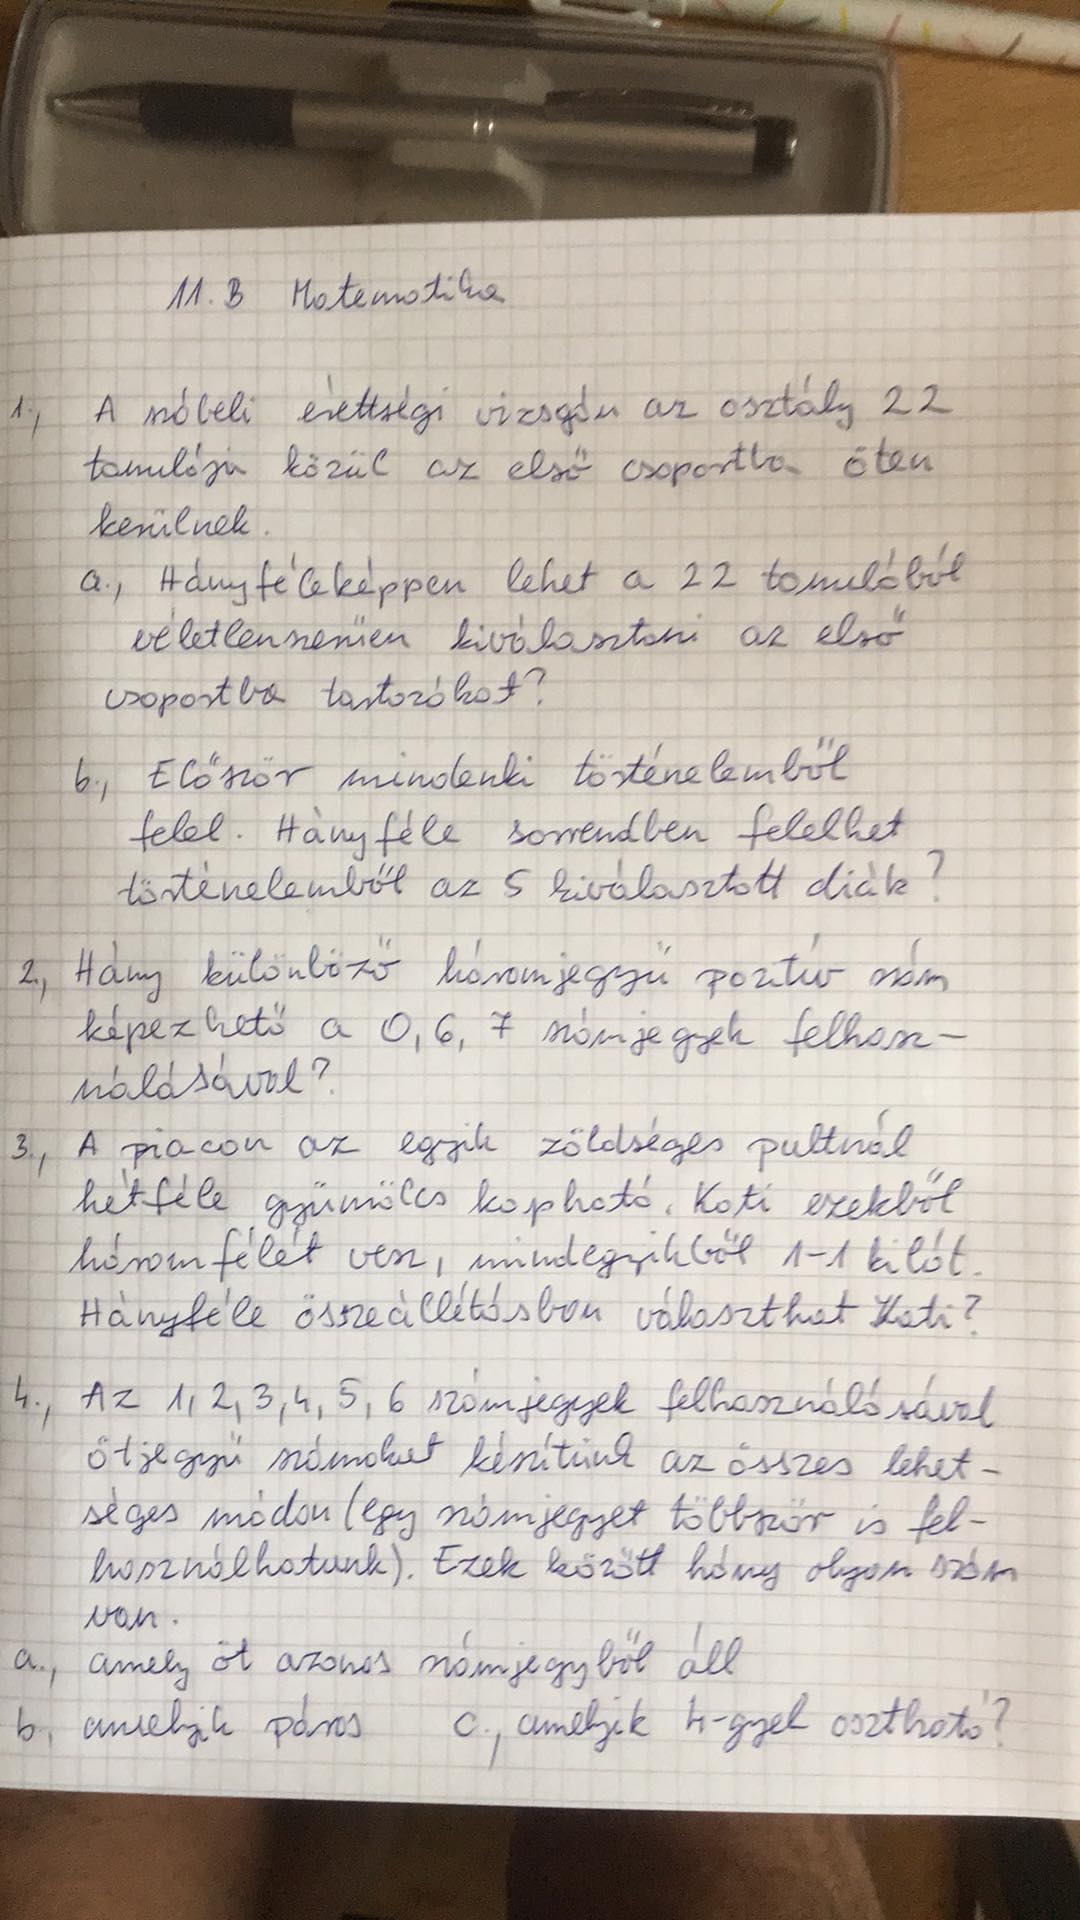 11. B Matematika
1., A szóbeli érettségi vizsgán az osztály 22
tanulója közül az első csoportba öten
kerülnek.
a., Hányféleképpen lehet a 22 tanulóból
véletlenszerűen kiválasztani az első
csoportba tartozókat?
b., Először mindenki történelemből
felel. Hányféle sorrendben felelhet
történelemből az 5 kiválasztott diák?
2., Hány különböző háromjegyű pozitív szám
képezhető a 0, 6, 7 számjegyek felhasz-
nálásával?
3., A piacon az egyik zöldséges pultnál
hétféle gyümölcs kapható. Kati ezekből
háromfélét vesz, mindegyikből 1-1 kilót.
Hányféle összeállításban választhat Kati?
4., Az 1, 2, 3, 4, 5, 6 számjegyek felhasználásával
ötjegyű számokat készítünk az összes lehet-
séges módon (egy számjegyet többször is fel-
használhatunk). Ezek között hány olyan szám
van.
a., amely öt azonos számjegyből áll
b, amelyik páros c., amelyik 4-gyel osztható?